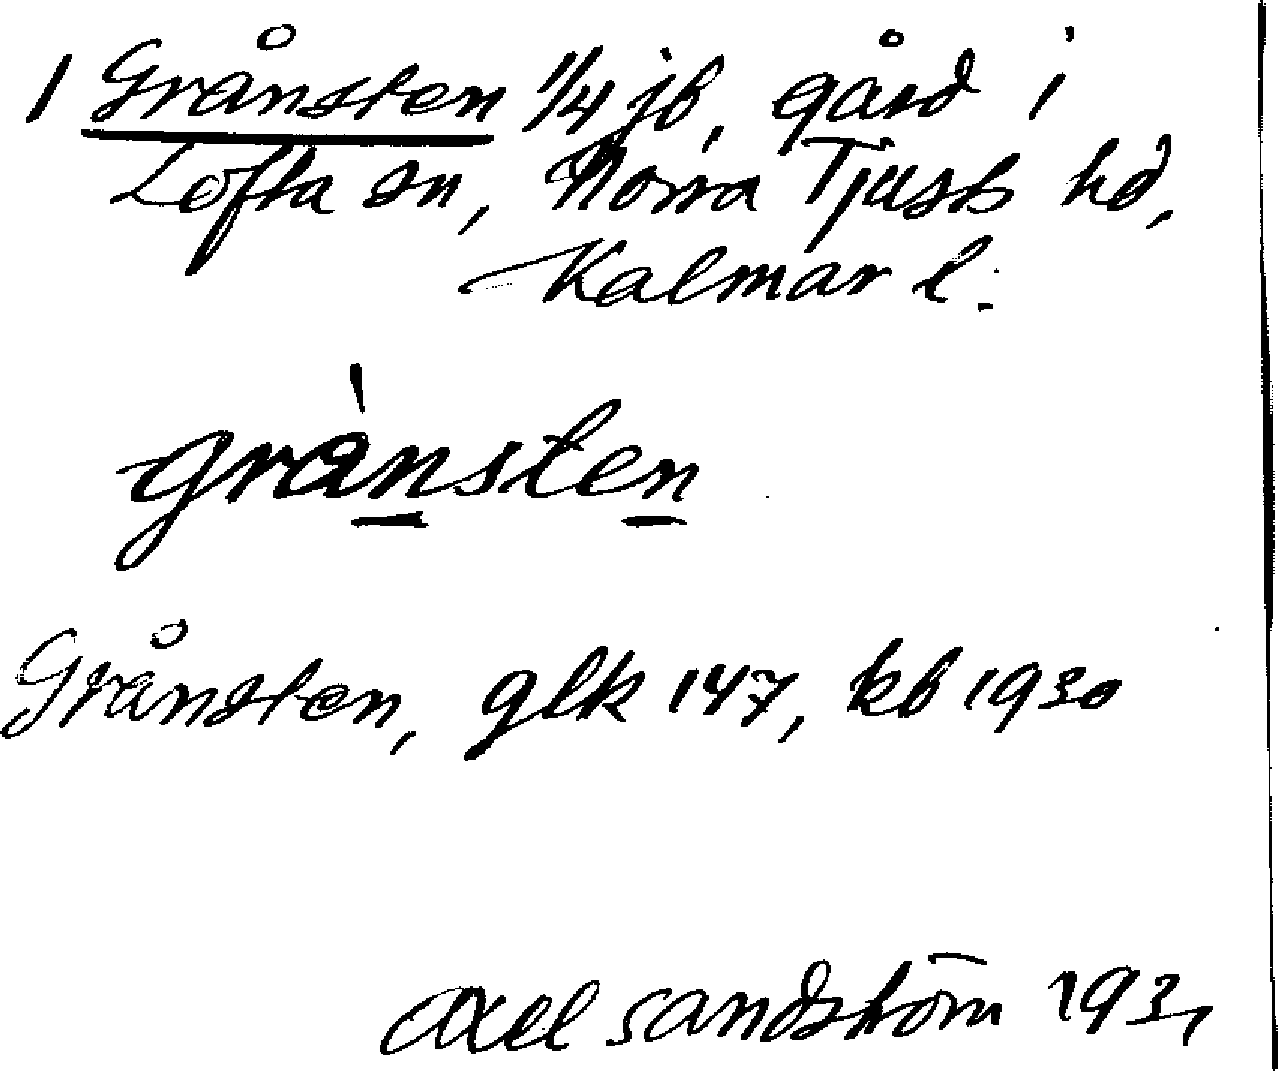 1 Grånsten 1/4 jb, gård i
Lofta sn, Norra Tjusts hd,
Kalmar l.
grànsten
Grånsten, glk 147, kb 1930
Axel Sandström 1931